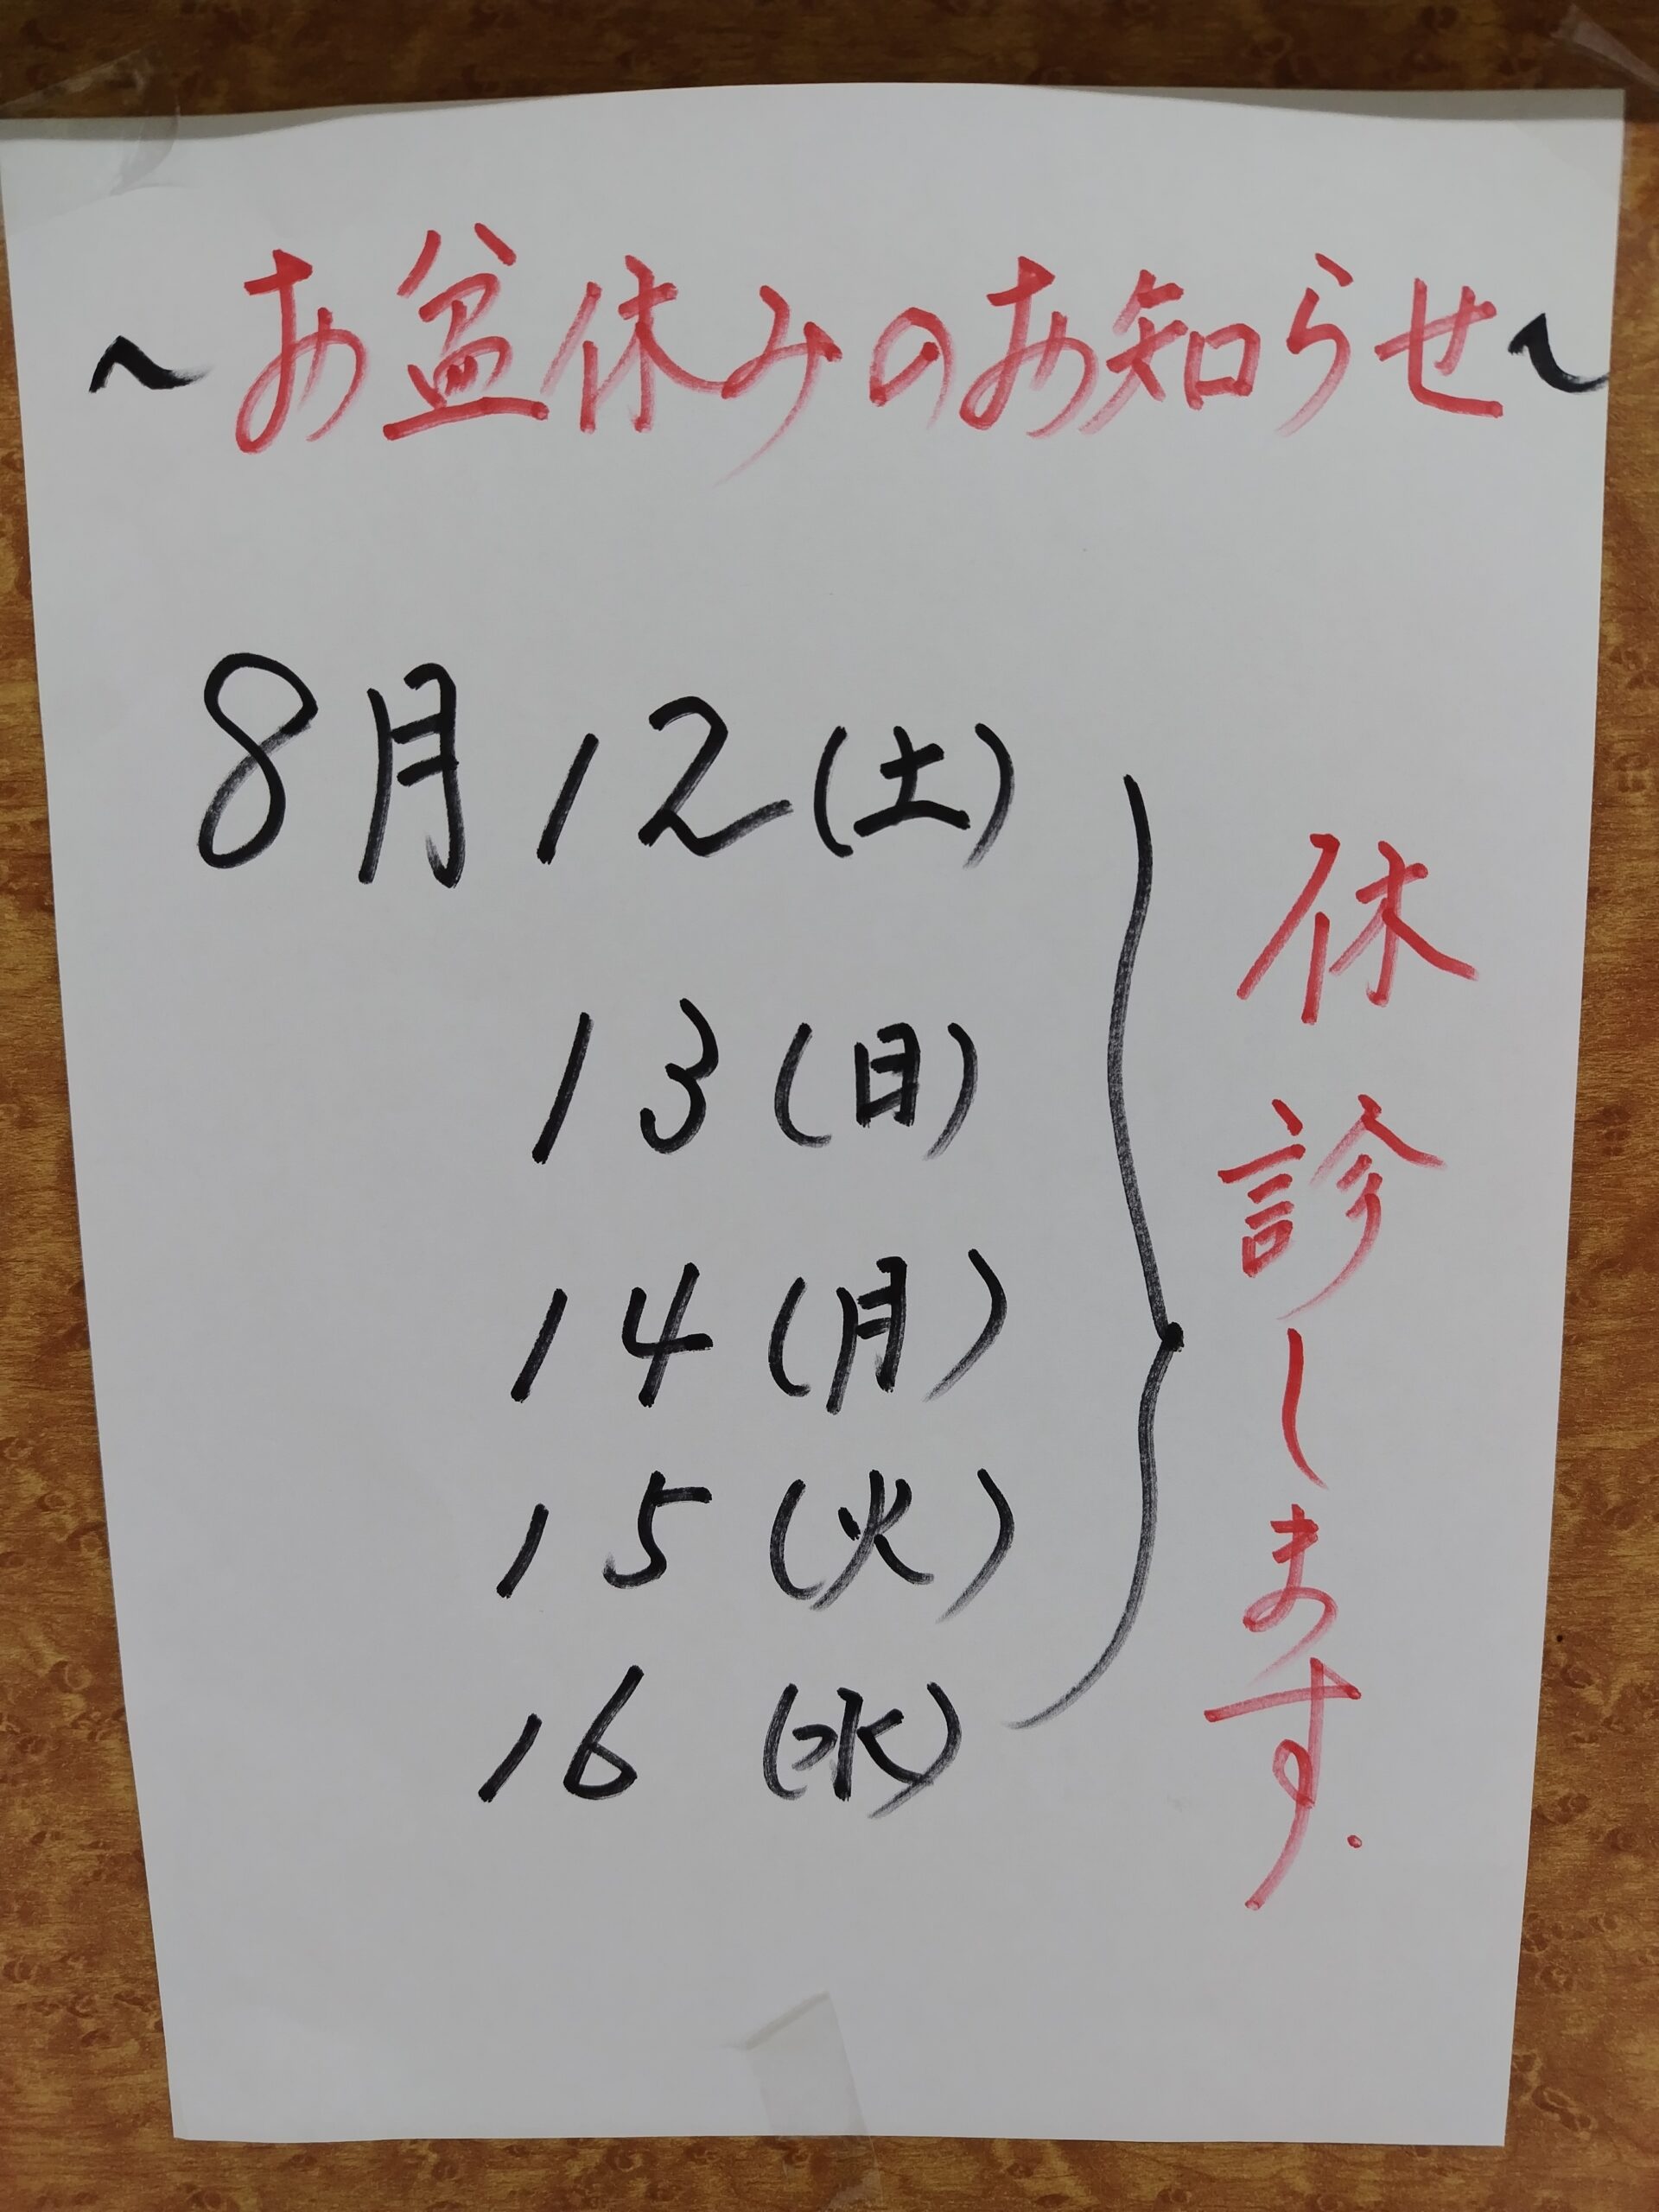 ～お盆休みのお知らせ～
8月12(土)
13(日)
14(月)
15(火)
16(水)
休診します.